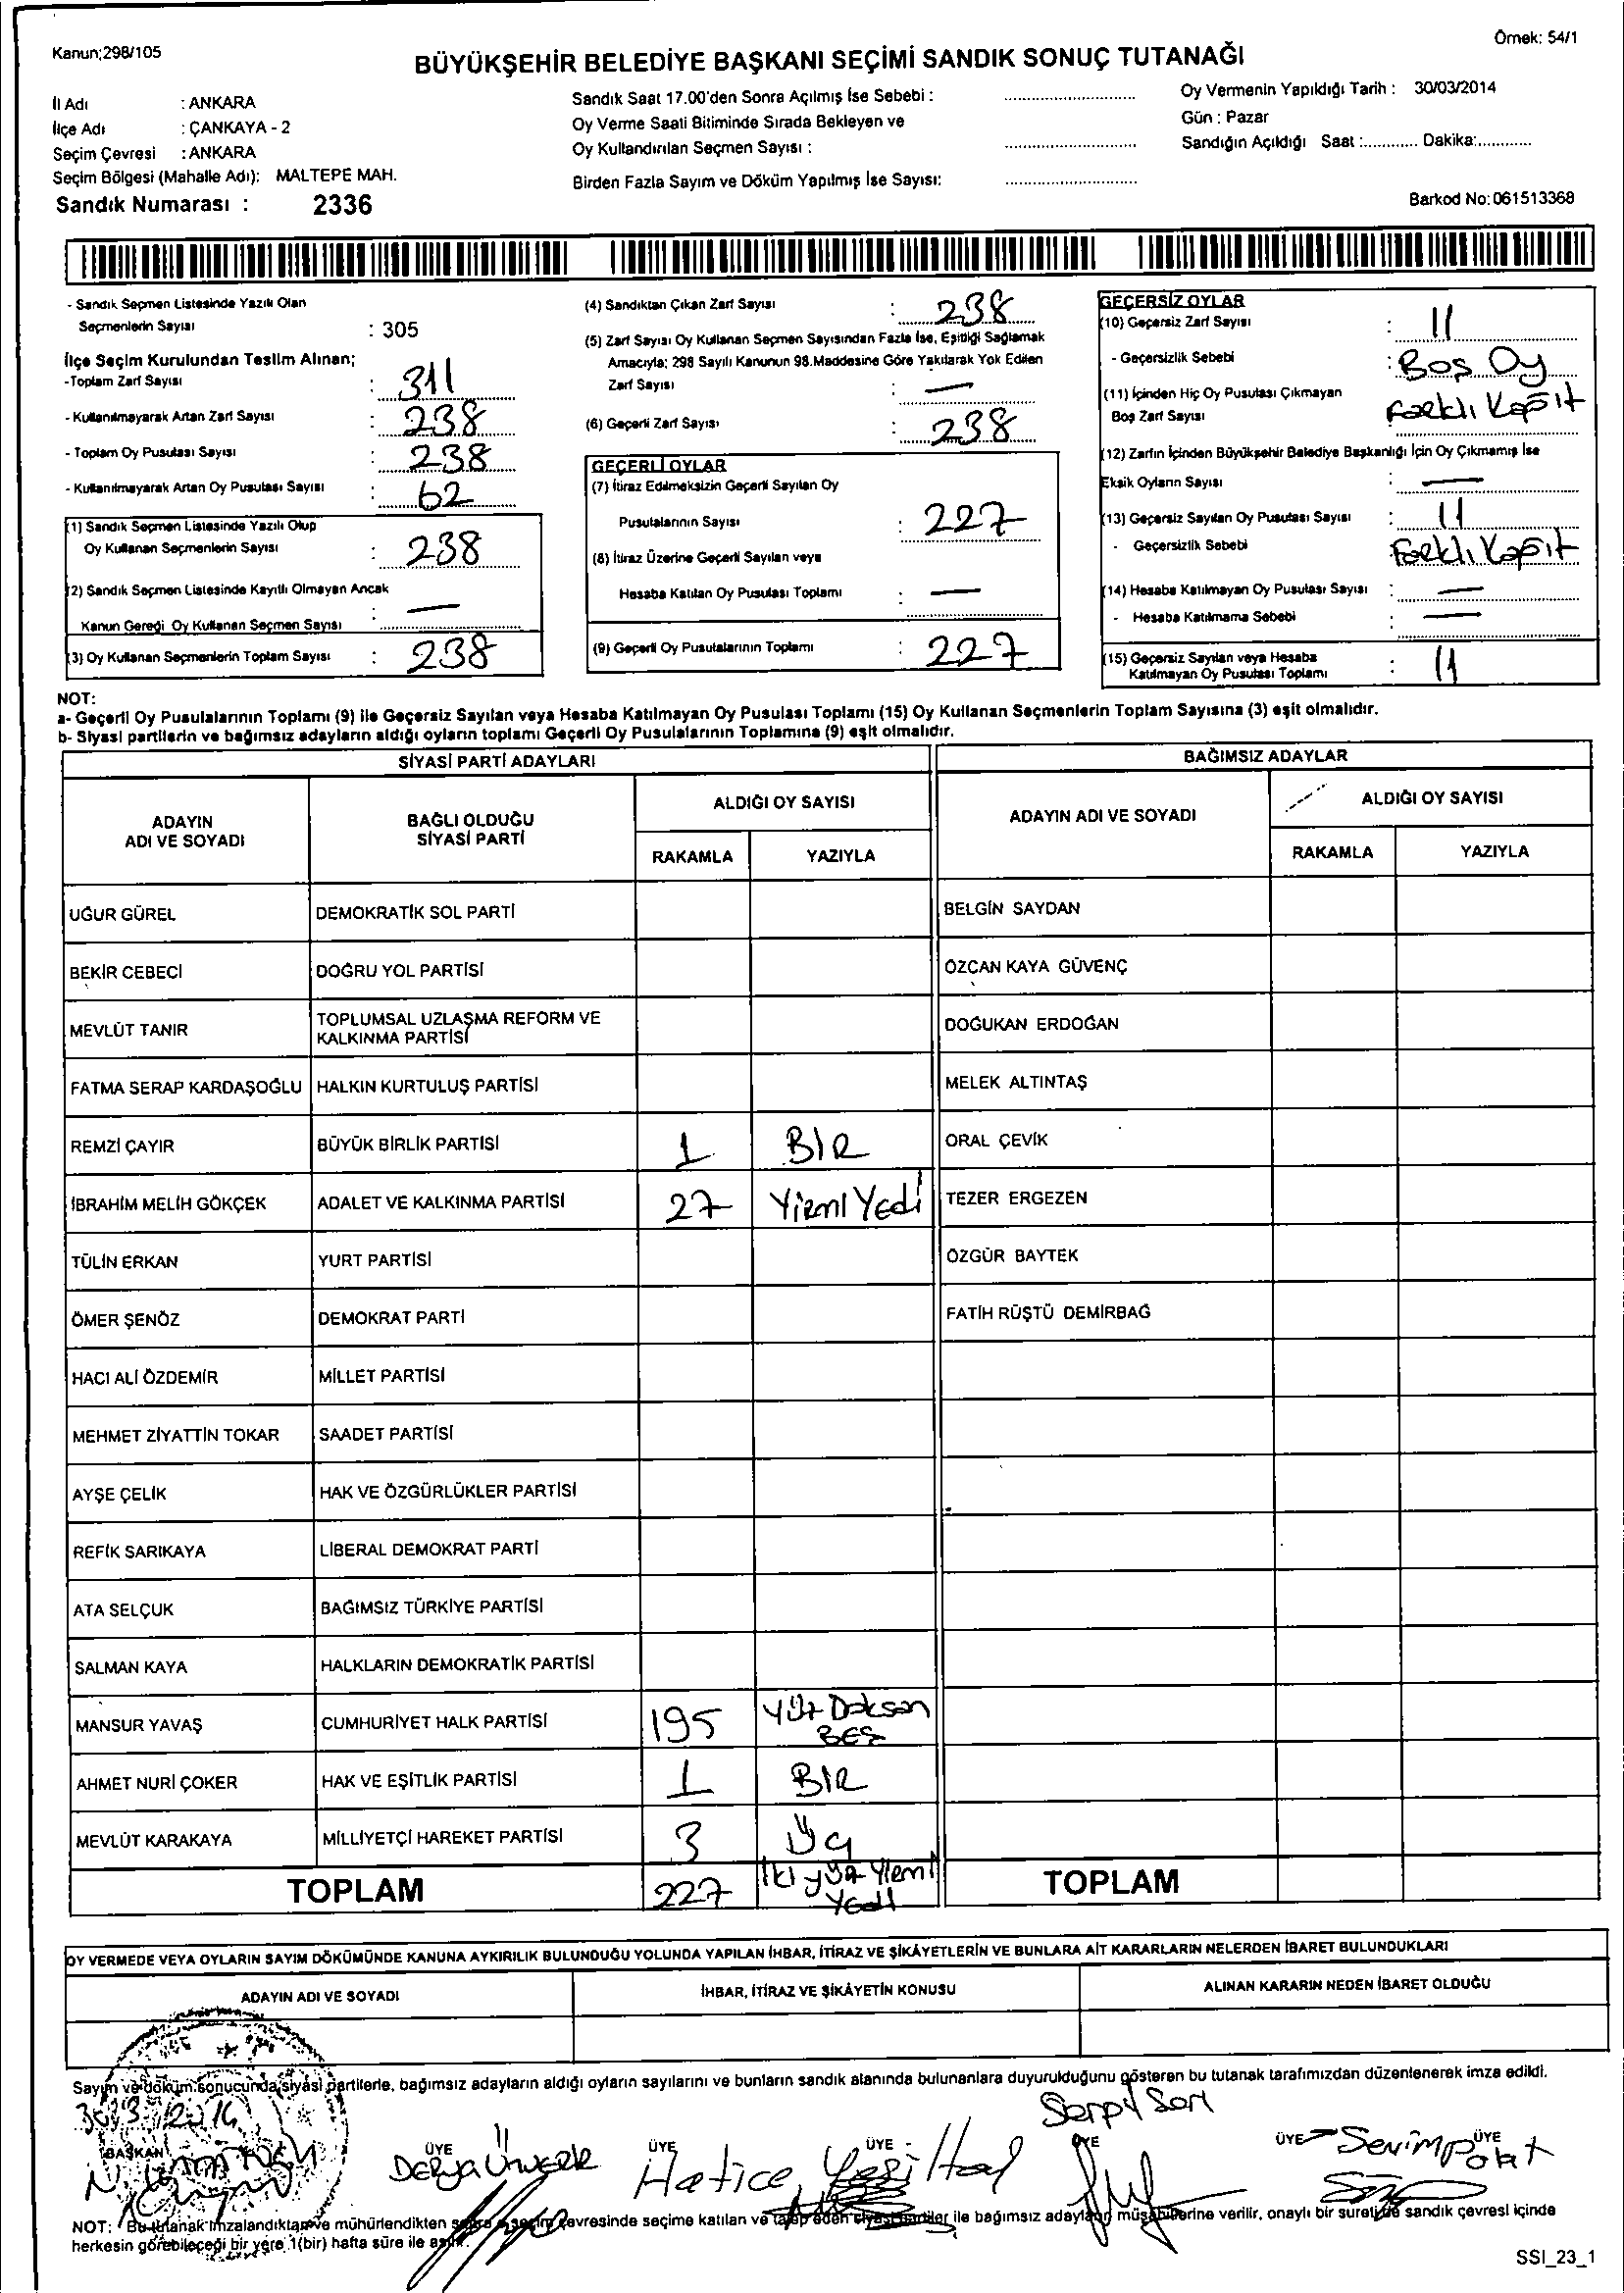 Kanun;298/105
Örnek: 54/1
BÜYÜKŞEHİR BELEDİYE BAŞKANI SEÇİMİ SANDIK SONUÇ TUTANAĞI
İl Adı : ANKARA
İlçe Adı : ÇANKAYA - 2
Seçim Çevresi : ANKARA
Seçim Bölgesi (Mahalle Adı): MALTEPE MAH.
Sandık Numarası : 2336
Sandık Saat 17.00'den Sonra Açılmış İse Sebebi :
Oy Verme Saati Bitiminde Sırada Bekleyen ve
Oy Kullandırılan Seçmen Sayısı :
Birden Fazla Sayım ve Döküm Yapılmış İse Sayısı:
Oy Vermenin Yapıldığı Tarih : 30/03/2014
Gün : Pazar
Sandığın Açıldığı Saat :............ Dakika:............
Barkod No:061513368
- Sandık Seçmen Listesinde Yazılı Olan
Seçmenlerin Sayısı : 305
İlçe Seçim Kurulundan Teslim Alınan;
-Toplam Zarf Sayısı : 311
- Kullanılmayarak Artan Zarf Sayısı : 238
- Toplam Oy Pusulası Sayısı : 238
- Kullanılmayarak Artan Oy Pusulası Sayısı : 62
(1) Sandık Seçmen Listesinde Yazılı Olup
Oy Kullanan Seçmenlerin Sayısı : 238
(2) Sandık Seçmen Listesinde Kayıtlı Olmayan Ancak
Kanun Gereği Oy Kullanan Seçmen Sayısı : —
(3) Oy Kullanan Seçmenlerin Toplam Sayısı : 238
(4) Sandıktan Çıkan Zarf Sayısı : 238
(5) Zarf Sayısı Oy Kullanan Seçmen Sayısından Fazla İse, Eşitliği Sağlamak
Amacıyla; 298 Sayılı Kanunun 98.Maddesine Göre Yakılarak Yok Edilen
Zarf Sayısı : —
(6) Geçerli Zarf Sayısı : 238
GEÇERLİ OYLAR
(7) İtiraz Edilmeksizin Geçerli Sayılan Oy
Pusulalarının Sayısı : 227
(8) İtiraz Üzerine Geçerli Sayılan veya
Hesaba Katılan Oy Pusulası Toplamı : —
(9) Geçerli Oy Pusulalarının Toplamı : 227
GEÇERSİZ OYLAR
(10) Geçersiz Zarf Sayısı : 11
- Geçersizlik Sebebi : Boş Oy
(11) İçinden Hiç Oy Pusulası Çıkmayan
Boş Zarf Sayısı Farklı Kağıt
(12) Zarfın İçinden Büyükşehir Belediye Başkanlığı İçin Oy Çıkmamış İse
Eksik Oyların Sayısı : —
(13) Geçersiz Sayılan Oy Pusulası Sayısı : 11
- Geçersizlik Sebebi : Farklı Kağıt
(14) Hesaba Katılmayan Oy Pusulası Sayısı : —
- Hesaba Katılmama Sebebi : —
(15) Geçersiz Sayılan veya Hesaba
Katılmayan Oy Pusulası Toplamı : 11
NOT:
a- Geçerli Oy Pusulalarının Toplamı (9) ile Geçersiz Sayılan veya Hesaba Katılmayan Oy Pusulası Toplamı (15) Oy Kullanan Seçmenlerin Toplam Sayısına (3) eşit olmalıdır.
b- Siyasi partilerin ve bağımsız adayların aldığı oyların toplamı Geçerli Oy Pusulalarının Toplamına (9) eşit olmalıdır.
SİYASİ PARTİ ADAYLARI
BAĞIMSIZ ADAYLAR
ADAYIN
ADI VE SOYADI
BAĞLI OLDUĞU
SİYASİ PARTİ
ALDIĞI OY SAYISI
RAKAMLA YAZIYLA
ADAYIN ADI VE SOYADI
ALDIĞI OY SAYISI
RAKAMLA YAZIYLA
UĞUR GÜREL DEMOKRATİK SOL PARTİ BELGİN SAYDAN
BEKİR CEBECİ DOĞRU YOL PARTİSİ ÖZCAN KAYA GÜVENÇ
MEVLÜT TANIR TOPLUMSAL UZLAŞMA REFORM VE
KALKINMA PARTİSİ DOĞUKAN ERDOĞAN
FATMA SERAP KARDAŞOĞLU HALKIN KURTULUŞ PARTİSİ MELEK ALTINTAŞ
REMZİ ÇAYIR BÜYÜK BİRLİK PARTİSİ 1 BİR ORAL ÇEVİK
İBRAHİM MELİH GÖKÇEK ADALET VE KALKINMA PARTİSİ 27 Yirmi Yedi TEZER ERGEZEN
TÜLİN ERKAN YURT PARTİSİ ÖZGÜR BAYTEK
ÖMER ŞENÖZ DEMOKRAT PARTİ FATİH RÜŞTÜ DEMİRBAĞ
HACI ALİ ÖZDEMİR MİLLET PARTİSİ
MEHMET ZİYATTİN TOKAR SAADET PARTİSİ
AYŞE ÇELİK HAK VE ÖZGÜRLÜKLER PARTİSİ
REFİK SARIKAYA LİBERAL DEMOKRAT PARTİ
ATA SELÇUK BAĞIMSIZ TÜRKİYE PARTİSİ
SALMAN KAYA HALKLARIN DEMOKRATİK PARTİSİ
MANSUR YAVAŞ CUMHURİYET HALK PARTİSİ 195 Yüz Doksan
BEŞ
AHMET NURİ ÇOKER HAK VE EŞİTLİK PARTİSİ 1 BİR
MEVLÜT KARAKAYA MİLLİYETÇİ HAREKET PARTİSİ 3 Üç
TOPLAM 227 İki yüz Yirmi
Yedi
TOPLAM
OY VERMEDE VEYA OYLARIN SAYIM DÖKÜMÜNDE KANUNA AYKIRILIK BULUNDUĞU YOLUNDA YAPILAN İHBAR, İTİRAZ VE ŞİKÂYETLERİN VE BUNLARA AİT KARARLARIN NELERDEN İBARET BULUNDUKLARI
ADAYIN ADI VE SOYADI İHBAR, İTİRAZ VE ŞİKÂYETİN KONUSU ALINAN KARARIN NEDEN İBARET OLDUĞU
Sayım ve döküm sonucunda siyasi partilerle, bağımsız adayların aldığı oyların sayılarını ve bunların sandık alanında bulunanlara duyurulduğunu gösteren bu tutanak tarafımızdan düzenlenerek imza edildi.
Serpil Sarı
BAŞKAN ÜYE ÜYE ÜYE ÜYE ÜYE ÜYE
Derya Ünverir Hatice Yeşiltaş Sevim Polat
NOT: Bu tutanak imzalandıktan ve mühürlendikten sonra seçim çevresinde seçime katılan ve talep eden siyasi partiler ile bağımsız adayların müşahitlerine verilir, onaylı bir sureti de sandık çevresi içinde
herkesin görebileceği bir yere 1(bir) hafta süre ile asılır.
SSI_23_1